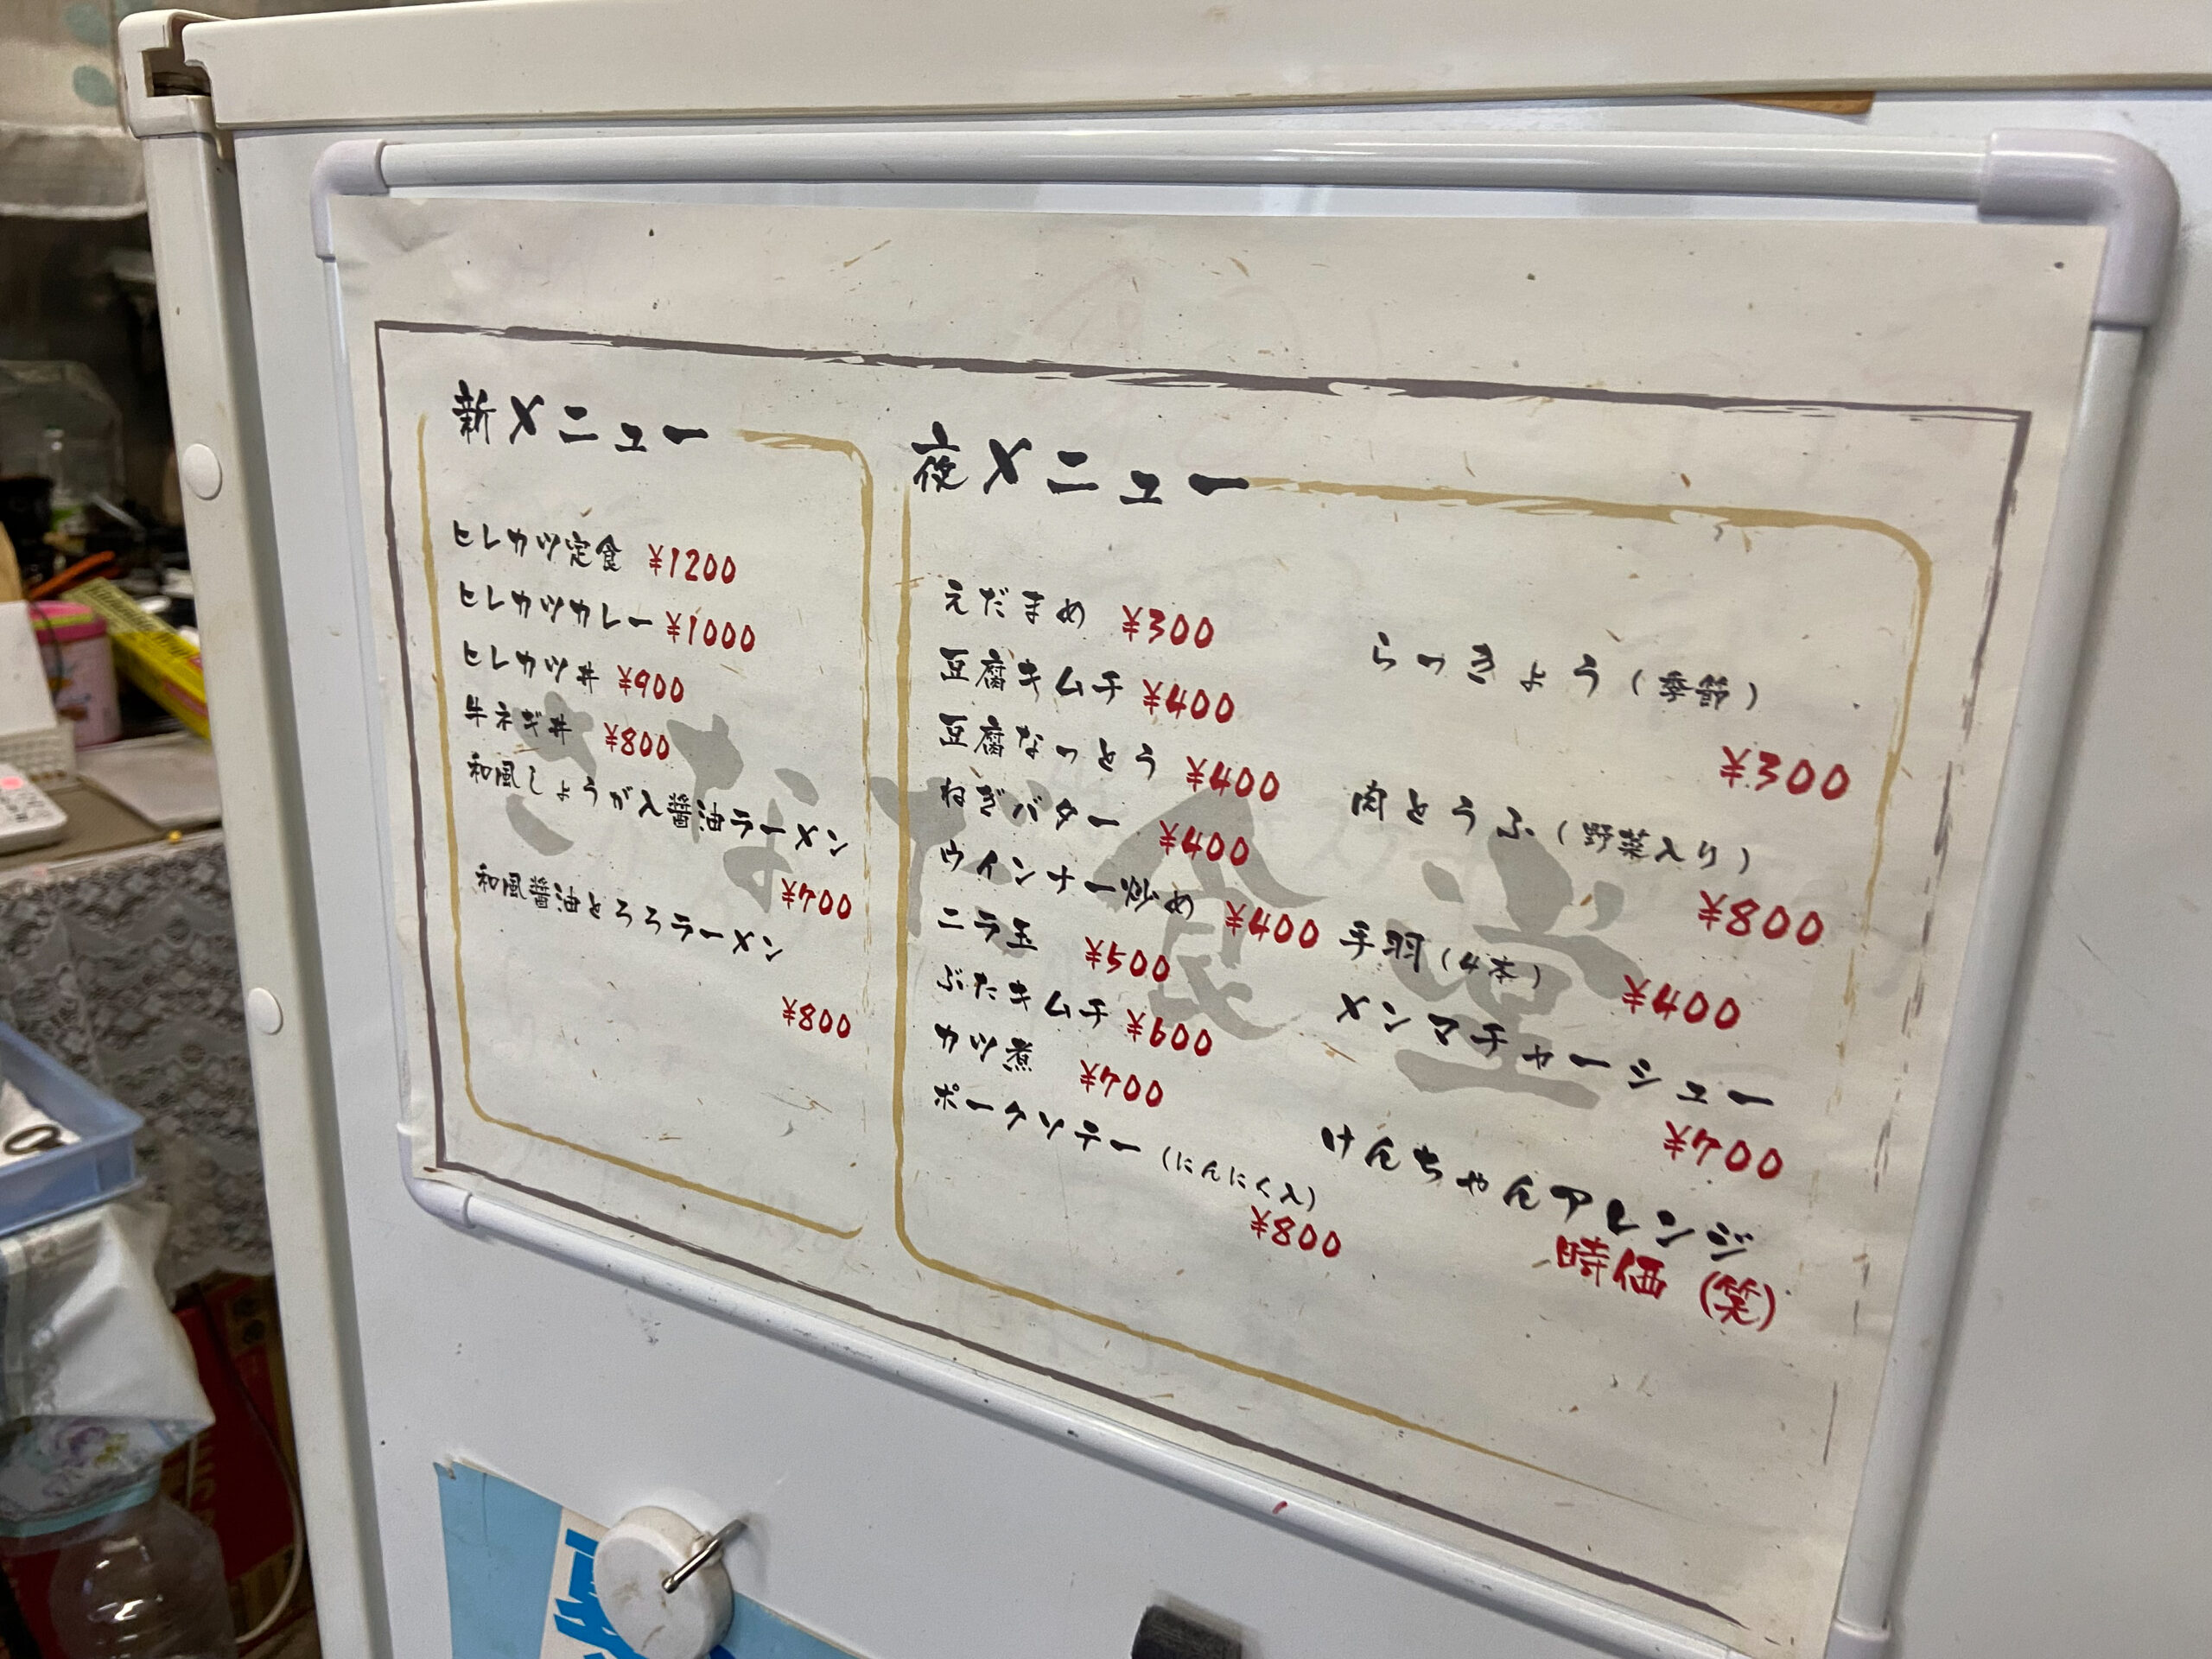 新メニュー
ヒレカツ定食 ¥1200
ヒレカツカレー ¥1000
ヒレカツ丼 ¥900
牛ネギ丼 ¥800
和風しょうが入醤油ラーメン
¥700
和風醤油とろろラーメン
¥800
夜メニュー
えだまめ ¥300
豆腐キムチ ¥400
豆腐なっとう ¥400
ねぎバター ¥400
ウインナー炒め ¥400
ニラ玉 ¥500
ぶたキムチ ¥600
カツ煮 ¥700
ポークソテー(にんにく入)
¥800
らっきょう(季節)
¥300
肉とうふ(野菜入り)
¥800
手羽(4本) ¥400
メンマチャーシュー
¥700
けんちゃんアレンジ
時価(笑)
食堂